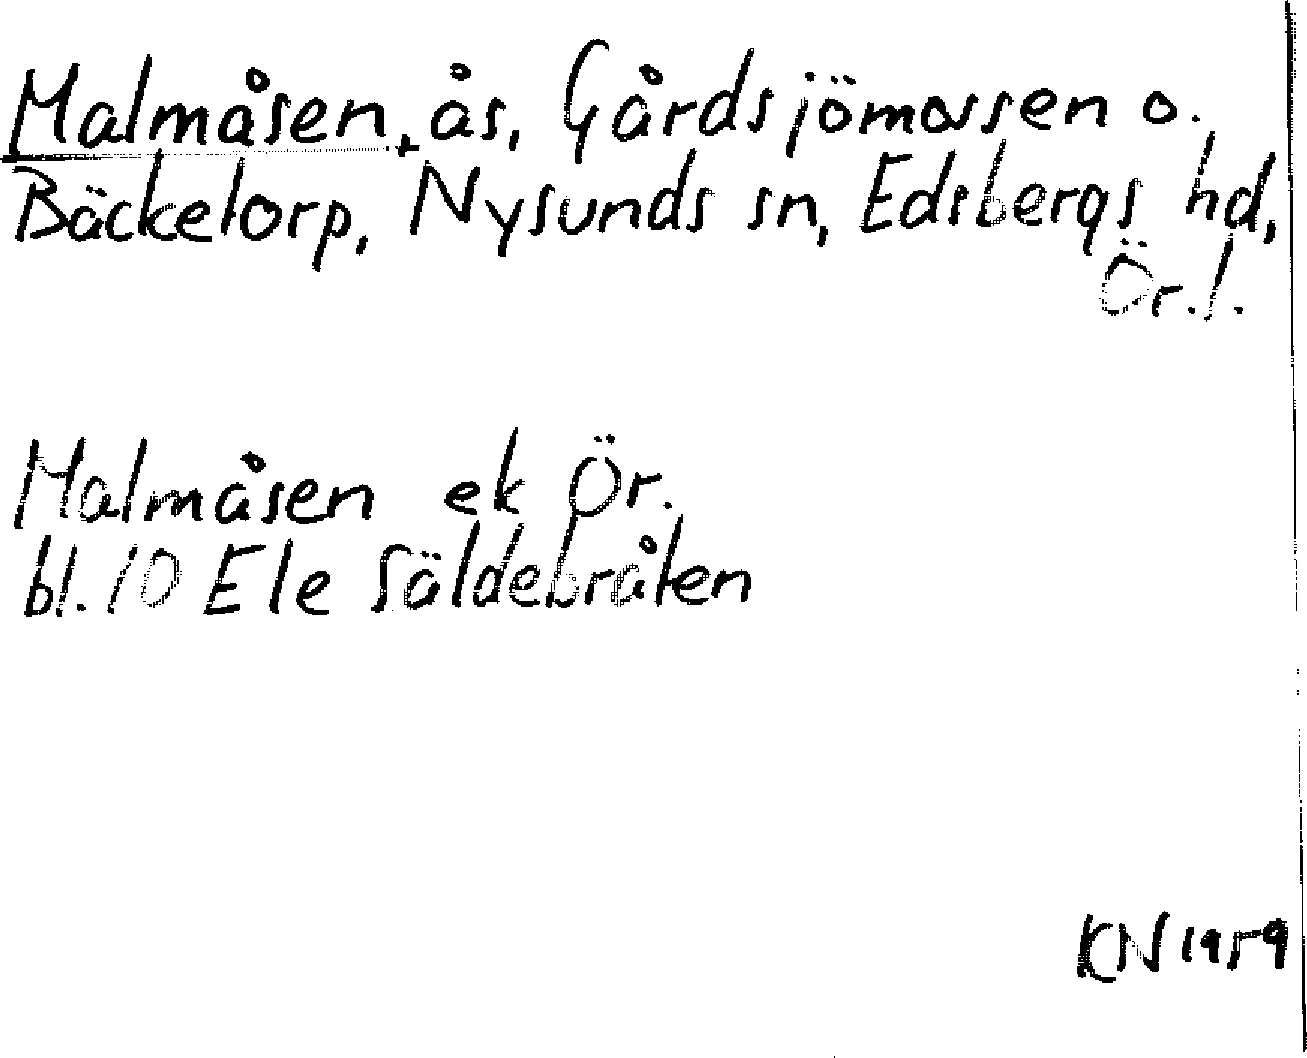 Malmåsen, ås, Gårdsjömossen o.
Bäcketorp, Nysunds sn, Edsbergs hd,
Ör.l.
Malmåsen ek Ör.
bl. 10 Ele Säldebråten
KN 1959